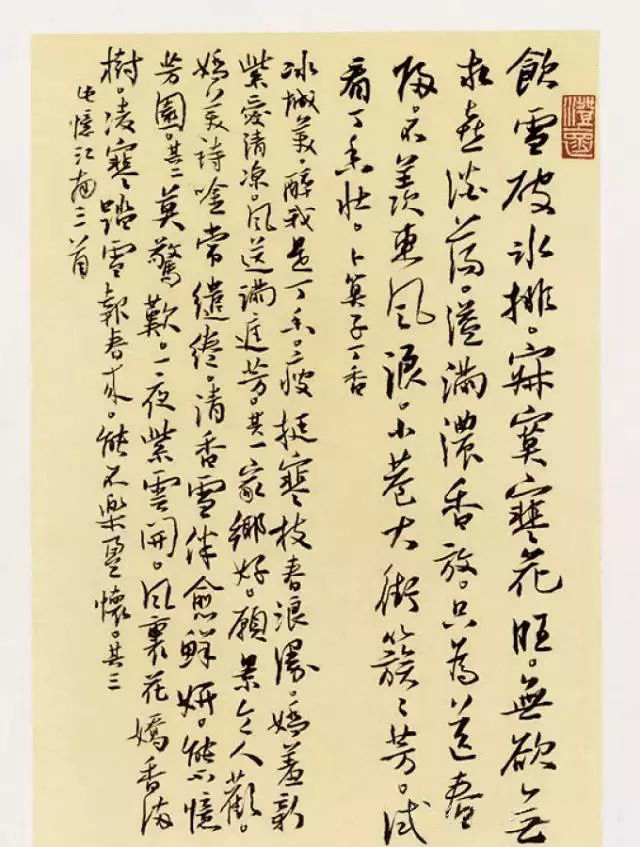 飲雪破冰排。寂寞寒花旺。無欲無
求盡澹蕩。溢滿濃香放。只為送春
歸。不羨東風浪。小巷大街簇簇芳。試
看丁香壯。卜算子丁香
冰城美。醉我是丁香。瘦挺寒枝春浪漫。嬌羞新
紫愛清凉。風送滿庭芳。其一家鄉好。願景令人歡。
嬌美詩吟常繾綣。清香雪伴愈鮮妍。能不憶
芳園。其二莫驚歎。一夜紫雲開。風裹花嬌香滿
樹。凌寒踏雪報春來。能不樂盈懷。其三
憶江南三首